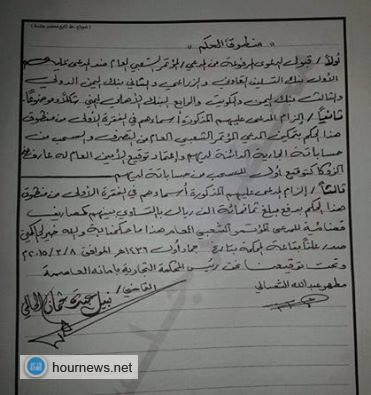 « منطوق الحكم »
أولاً / قبول الدعوى المرفوعة من المدعي / المؤتمر الشعبي العام ضد المدعى عليهم
الأول بنك التسليف التعاوني والزراعي والثاني بنك اليمن الدولي
والثالث بنك اليمن والكويت والرابع البنك الأهلي اليمني شكلاً وموضوعاً.
ثانياً / إلزام المدعى عليهم المذكورة أسماءهم في الفقرة الأولى من منطوق
هذا الحكم بتمكين المدعي المؤتمر الشعبي العام من التصرف والسحب من
حساباته الجارية الدائنة لديهم وإعتماد توقيع الأمين العام له عارف
الزوكا كتوقيع أول للسحب من حساباته لديهم
ثالثاً / إلزام المدعى عليهم المذكورة أسماءهم في الفقرة الأولى من منطوق
هذا الحكم بدفع مبلغ ثمانمائة الف ريال بالتساوي بينهم كمصاريف
قضائية للمدعي المؤتمر الشعبي العام هذا ما حكمنا به والله خير الحاكمين
صدر علناً بقاعة المحكمة بتاريخ جماد أول ١٤٣٦هـ الموافق ٢٠١٥/٣/٨م
وتحت توقيعنا رئيس المحكمة التجارية بأمانة العاصمة
مطهر عبدالله الشمالي القاضي /
hournews.net